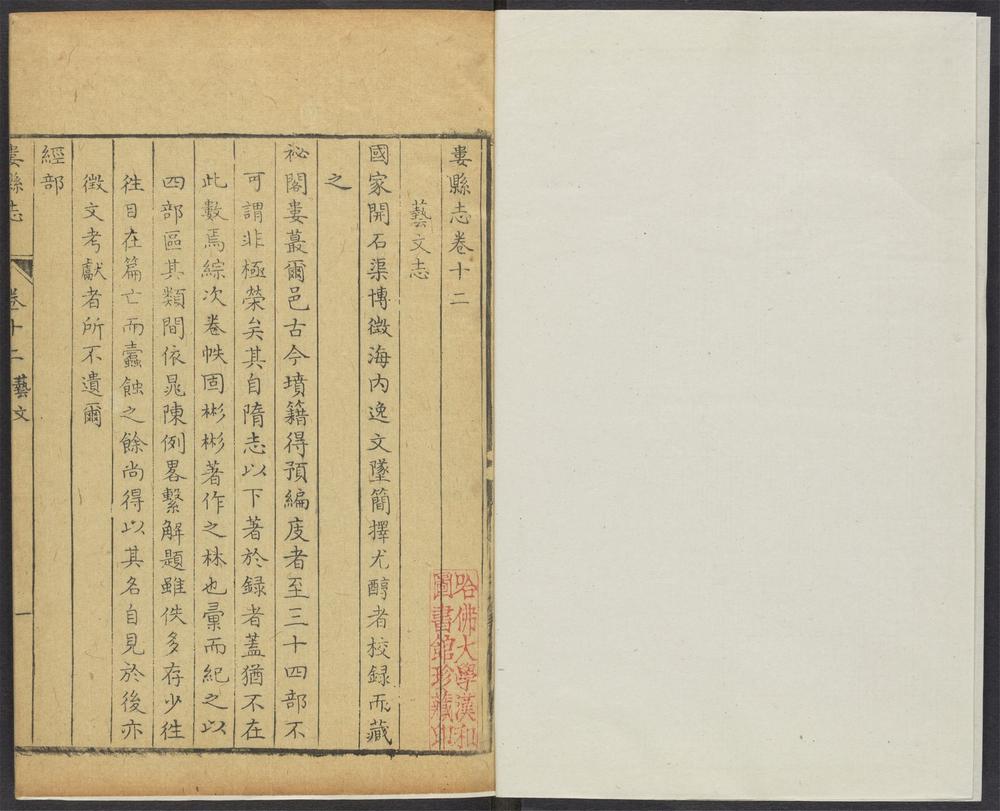 婁縣志卷十二
藝文志
國家開石渠博徴海内逸文墜簡擇尤醇者校録而藏
之
祕閣婁蕞爾邑古今墳籍得預編庋者至三十四部不
可謂非極榮矣其自隋志以下著於録者蓋猶不在
此數焉綜次卷帙固彬彬著作之林也彙而紀之以
四部區其類間依晁陳例畧繫解題雖佚多存少徃
徃目在篇亡而蠹蝕之餘尚得以其名自見於後亦
徵文考獻者所不遺爾
經部
婁縣志
卷十二
藝文
一
哈佛大學漢和
圖書館珍藏印